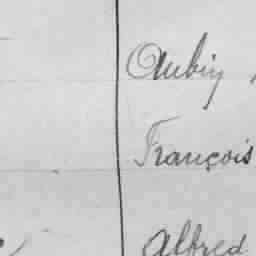 Aubin
François
Alfred